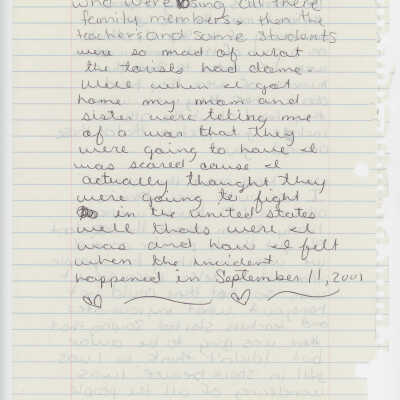 who were losing all there
family members, then the
teachers and some students
were so mad of what
the torists had done.
Well when I got
home my mom and
sister were teling me
of a war that they
were going to have I
was scared cause I
actually thought they
were going to fight
in the united states
well thats were I
was and how I felt
when the incident
happened in September 11, 2001